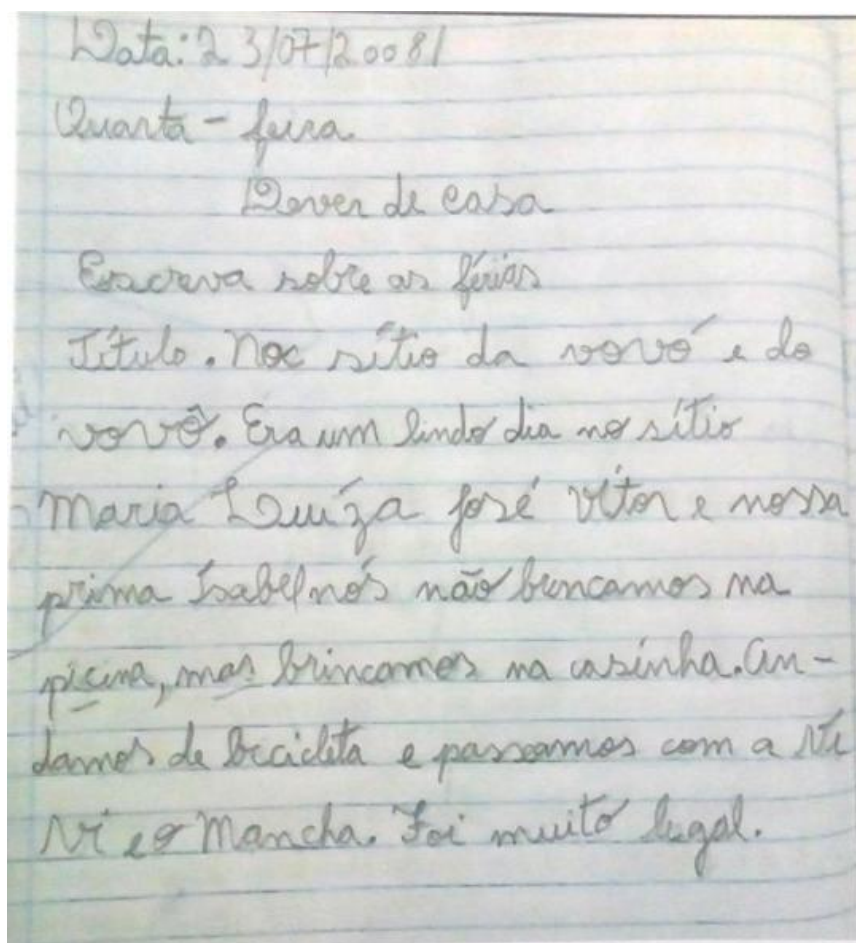 Data: 23/07/2008/
Quarta-feira
Dever de casa
Escreva sobre as férias
Título. No sítio da vovó e do
vovô. Era um lindo dia no sítio
Maria Luíza José Vítor e nossa
prima Isabel nós não bencamos na
picina, mas brincamos na casinha. an-
damos de bicicleta e passeamos com a
e o Mancha. Foi muito legal.